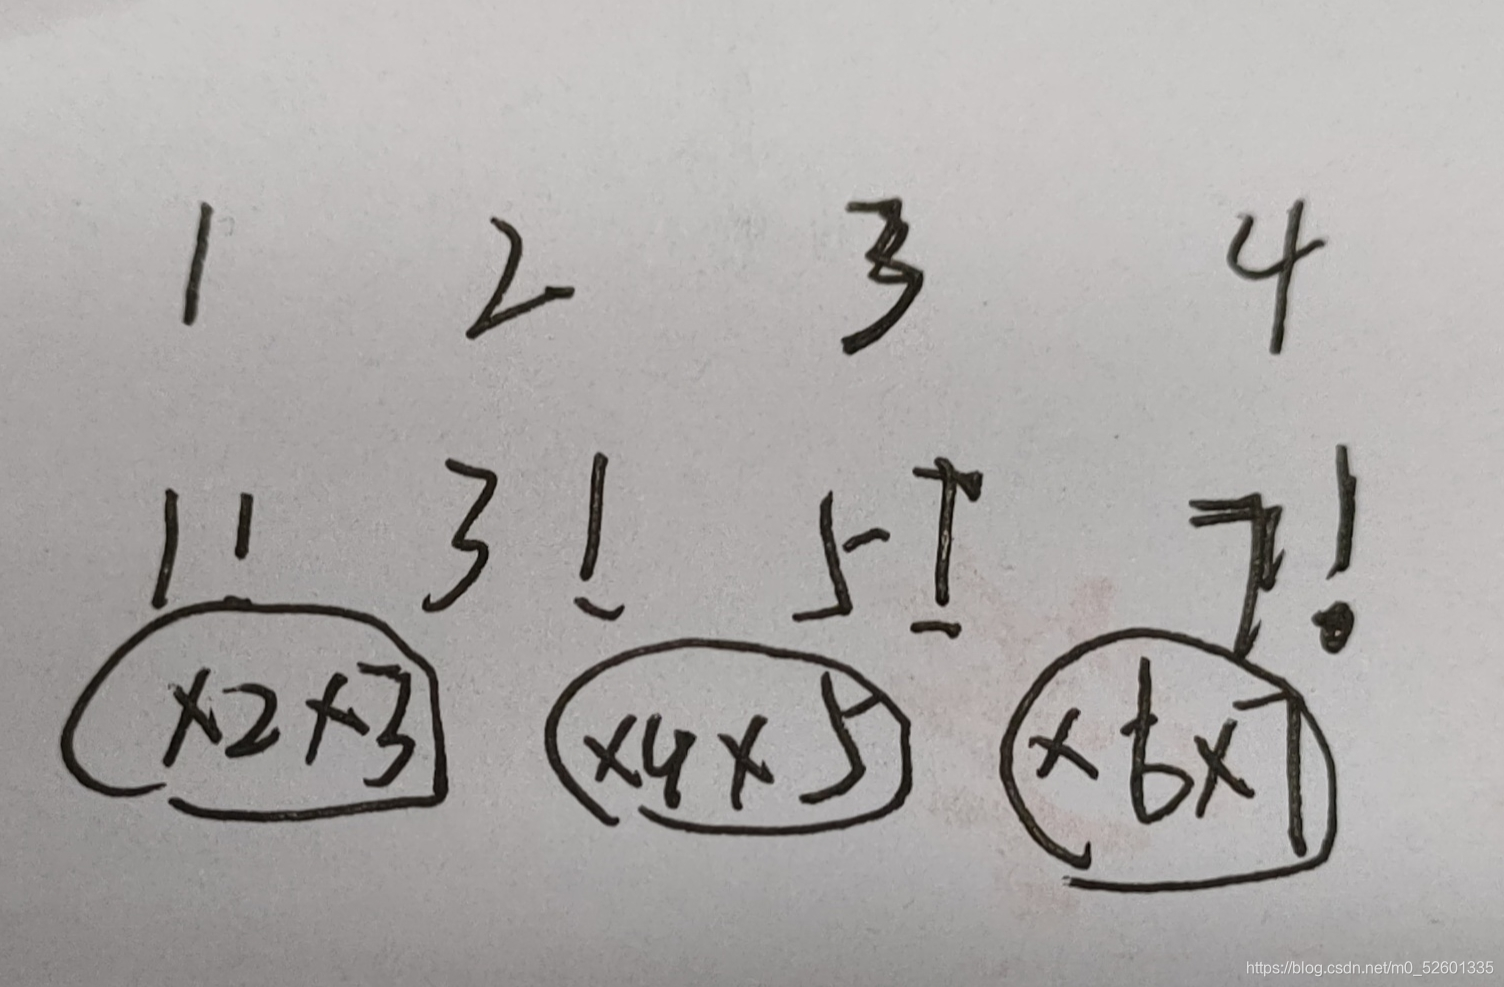 1 2 3 4
1! 3! 5! 7!
×2×3 ×4×5 ×6×7
https://blog.csdn.net/m0_52601335